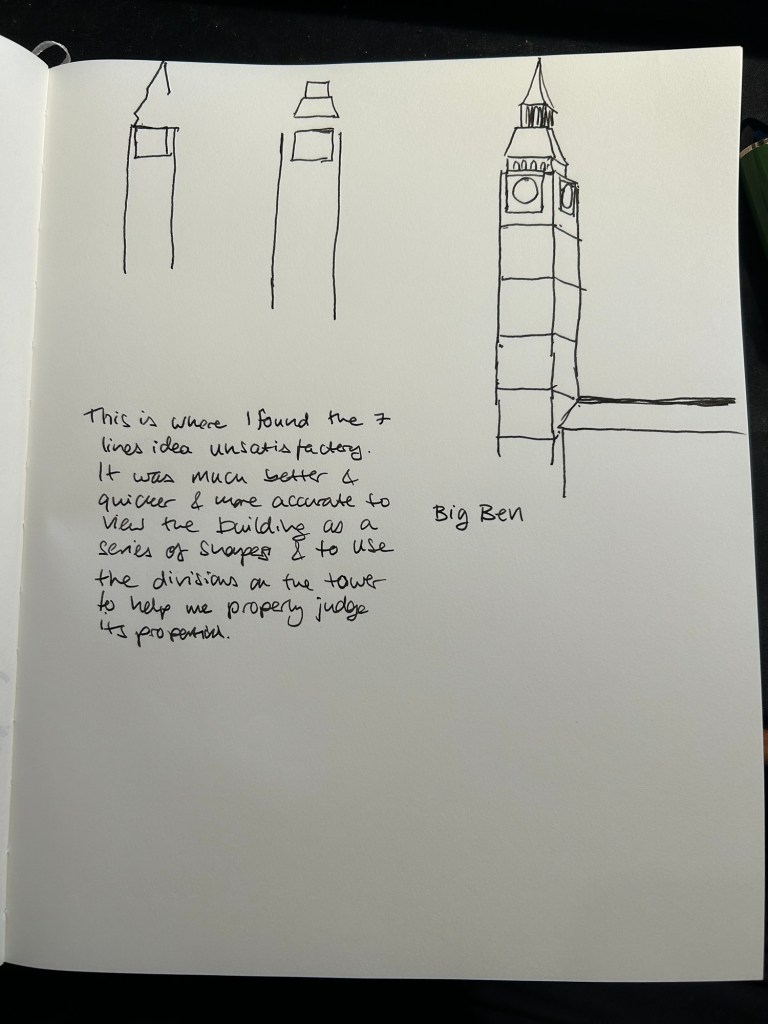 This is where I found the 7
lines idea unsatisfactory.
It was much better &
quicker & more accurate to
view the building as a
series of shapes & to use
the divisions on the tower
to help me properly judge
its proportion.
Big Ben